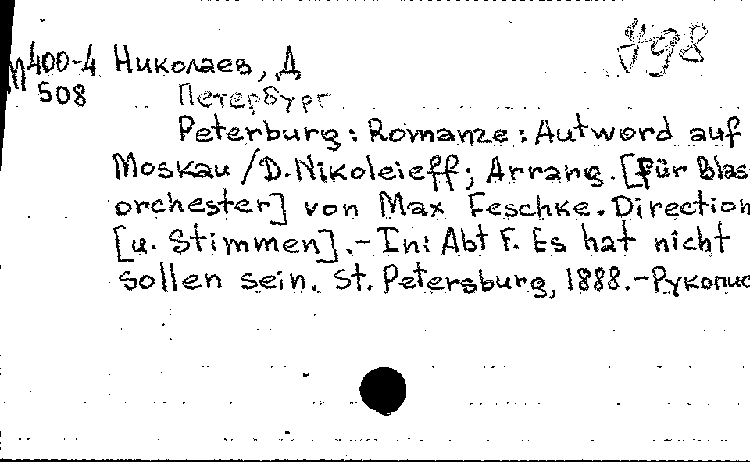 798
М400-4 Николаев, Д
508 Петербург
Peterburg: Romanze: Autword auf
Moskau / D. Nikoleieff; Arrang. [Für Blas
orchester] von Max Feschke. Direction
[u. Stimmen]. - In: Abt F. Es hat nicht
sollen sein. St. Petersburg, 1888. - Рукопис